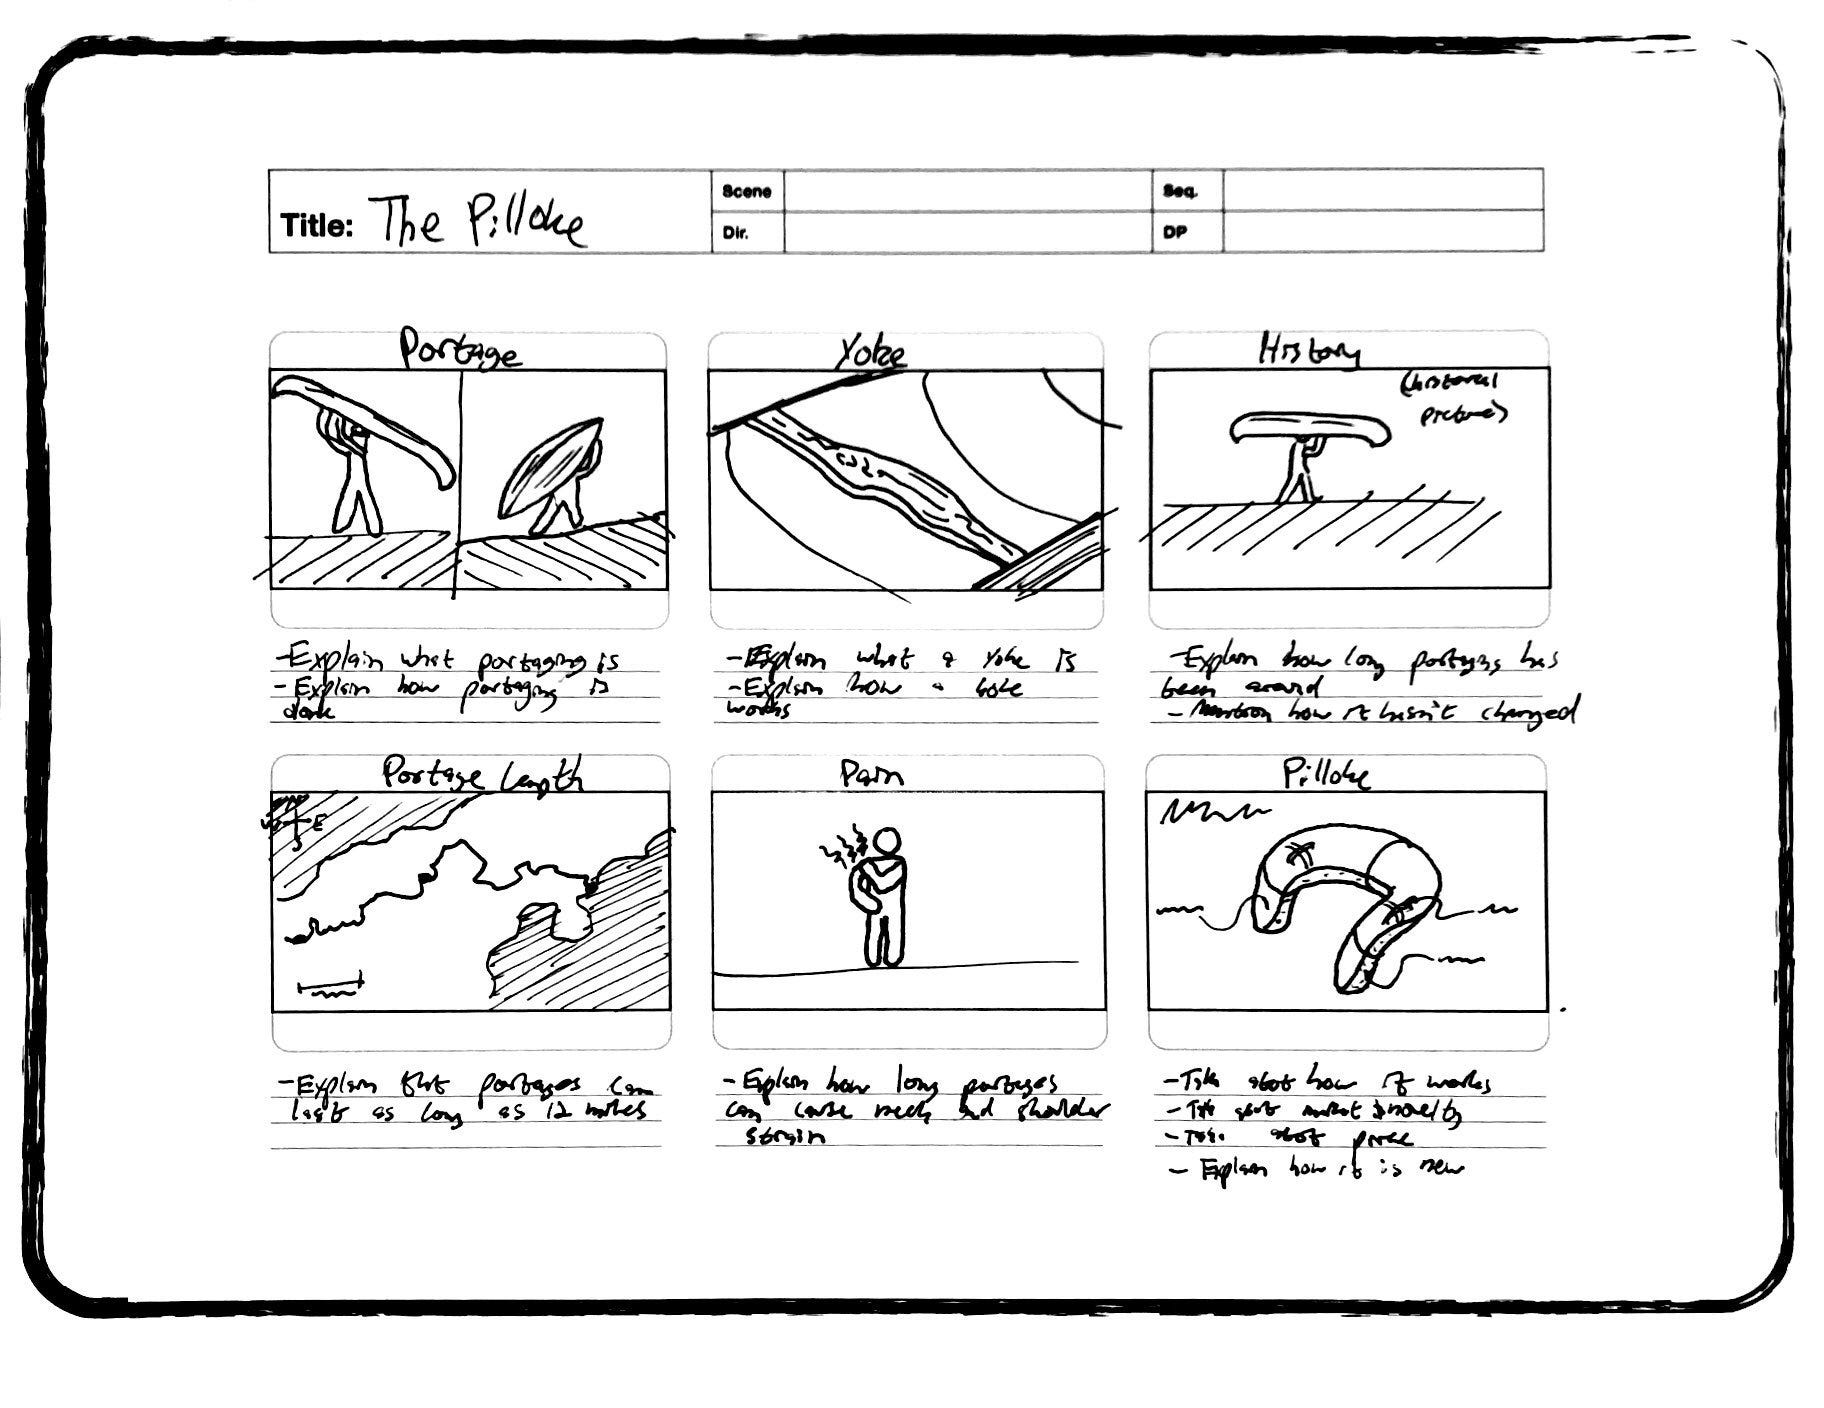 Title: The Pilloke
Scene
Seq.
Dir.
DP
Portage
Yoke
History
(historical
picture)
-Explain what portaging is
-Explain how portaging is
done
-Explain what a Yoke is
-Explain how a Yoke
works
-Explain how long portaging has
been around
-Mention how it hasn't changed
Portage Length
Pain
Pilloke
W E
S
-Explain that portages can
last as long as 12 miles
-Explain how long portages
can cause neck and shoulder
strain
-Talk about how it works
-Talk about market & novelty
-Talk about price
-Explain how it is new